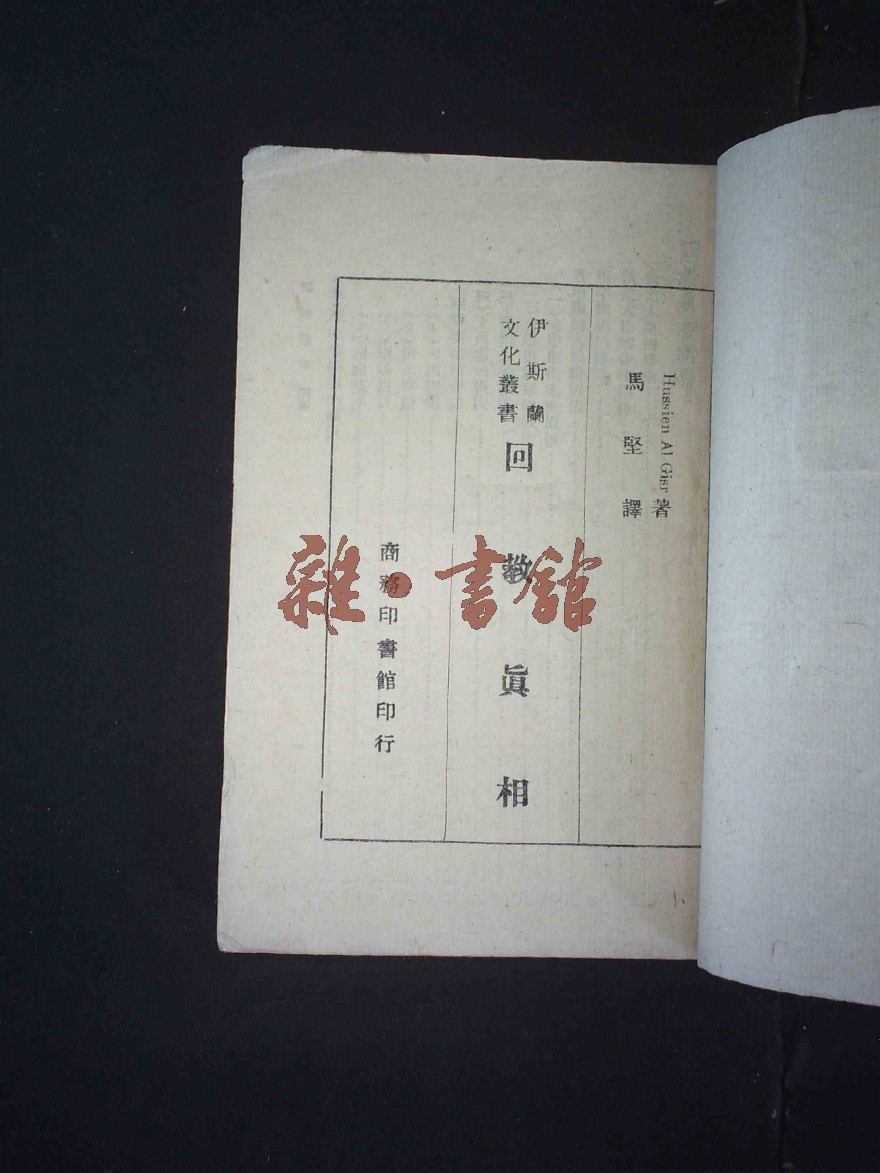 Hussien Al Gisr 著
馬堅譯
伊斯蘭
文化叢書
回教眞相
商務印書館印行
雜·書館